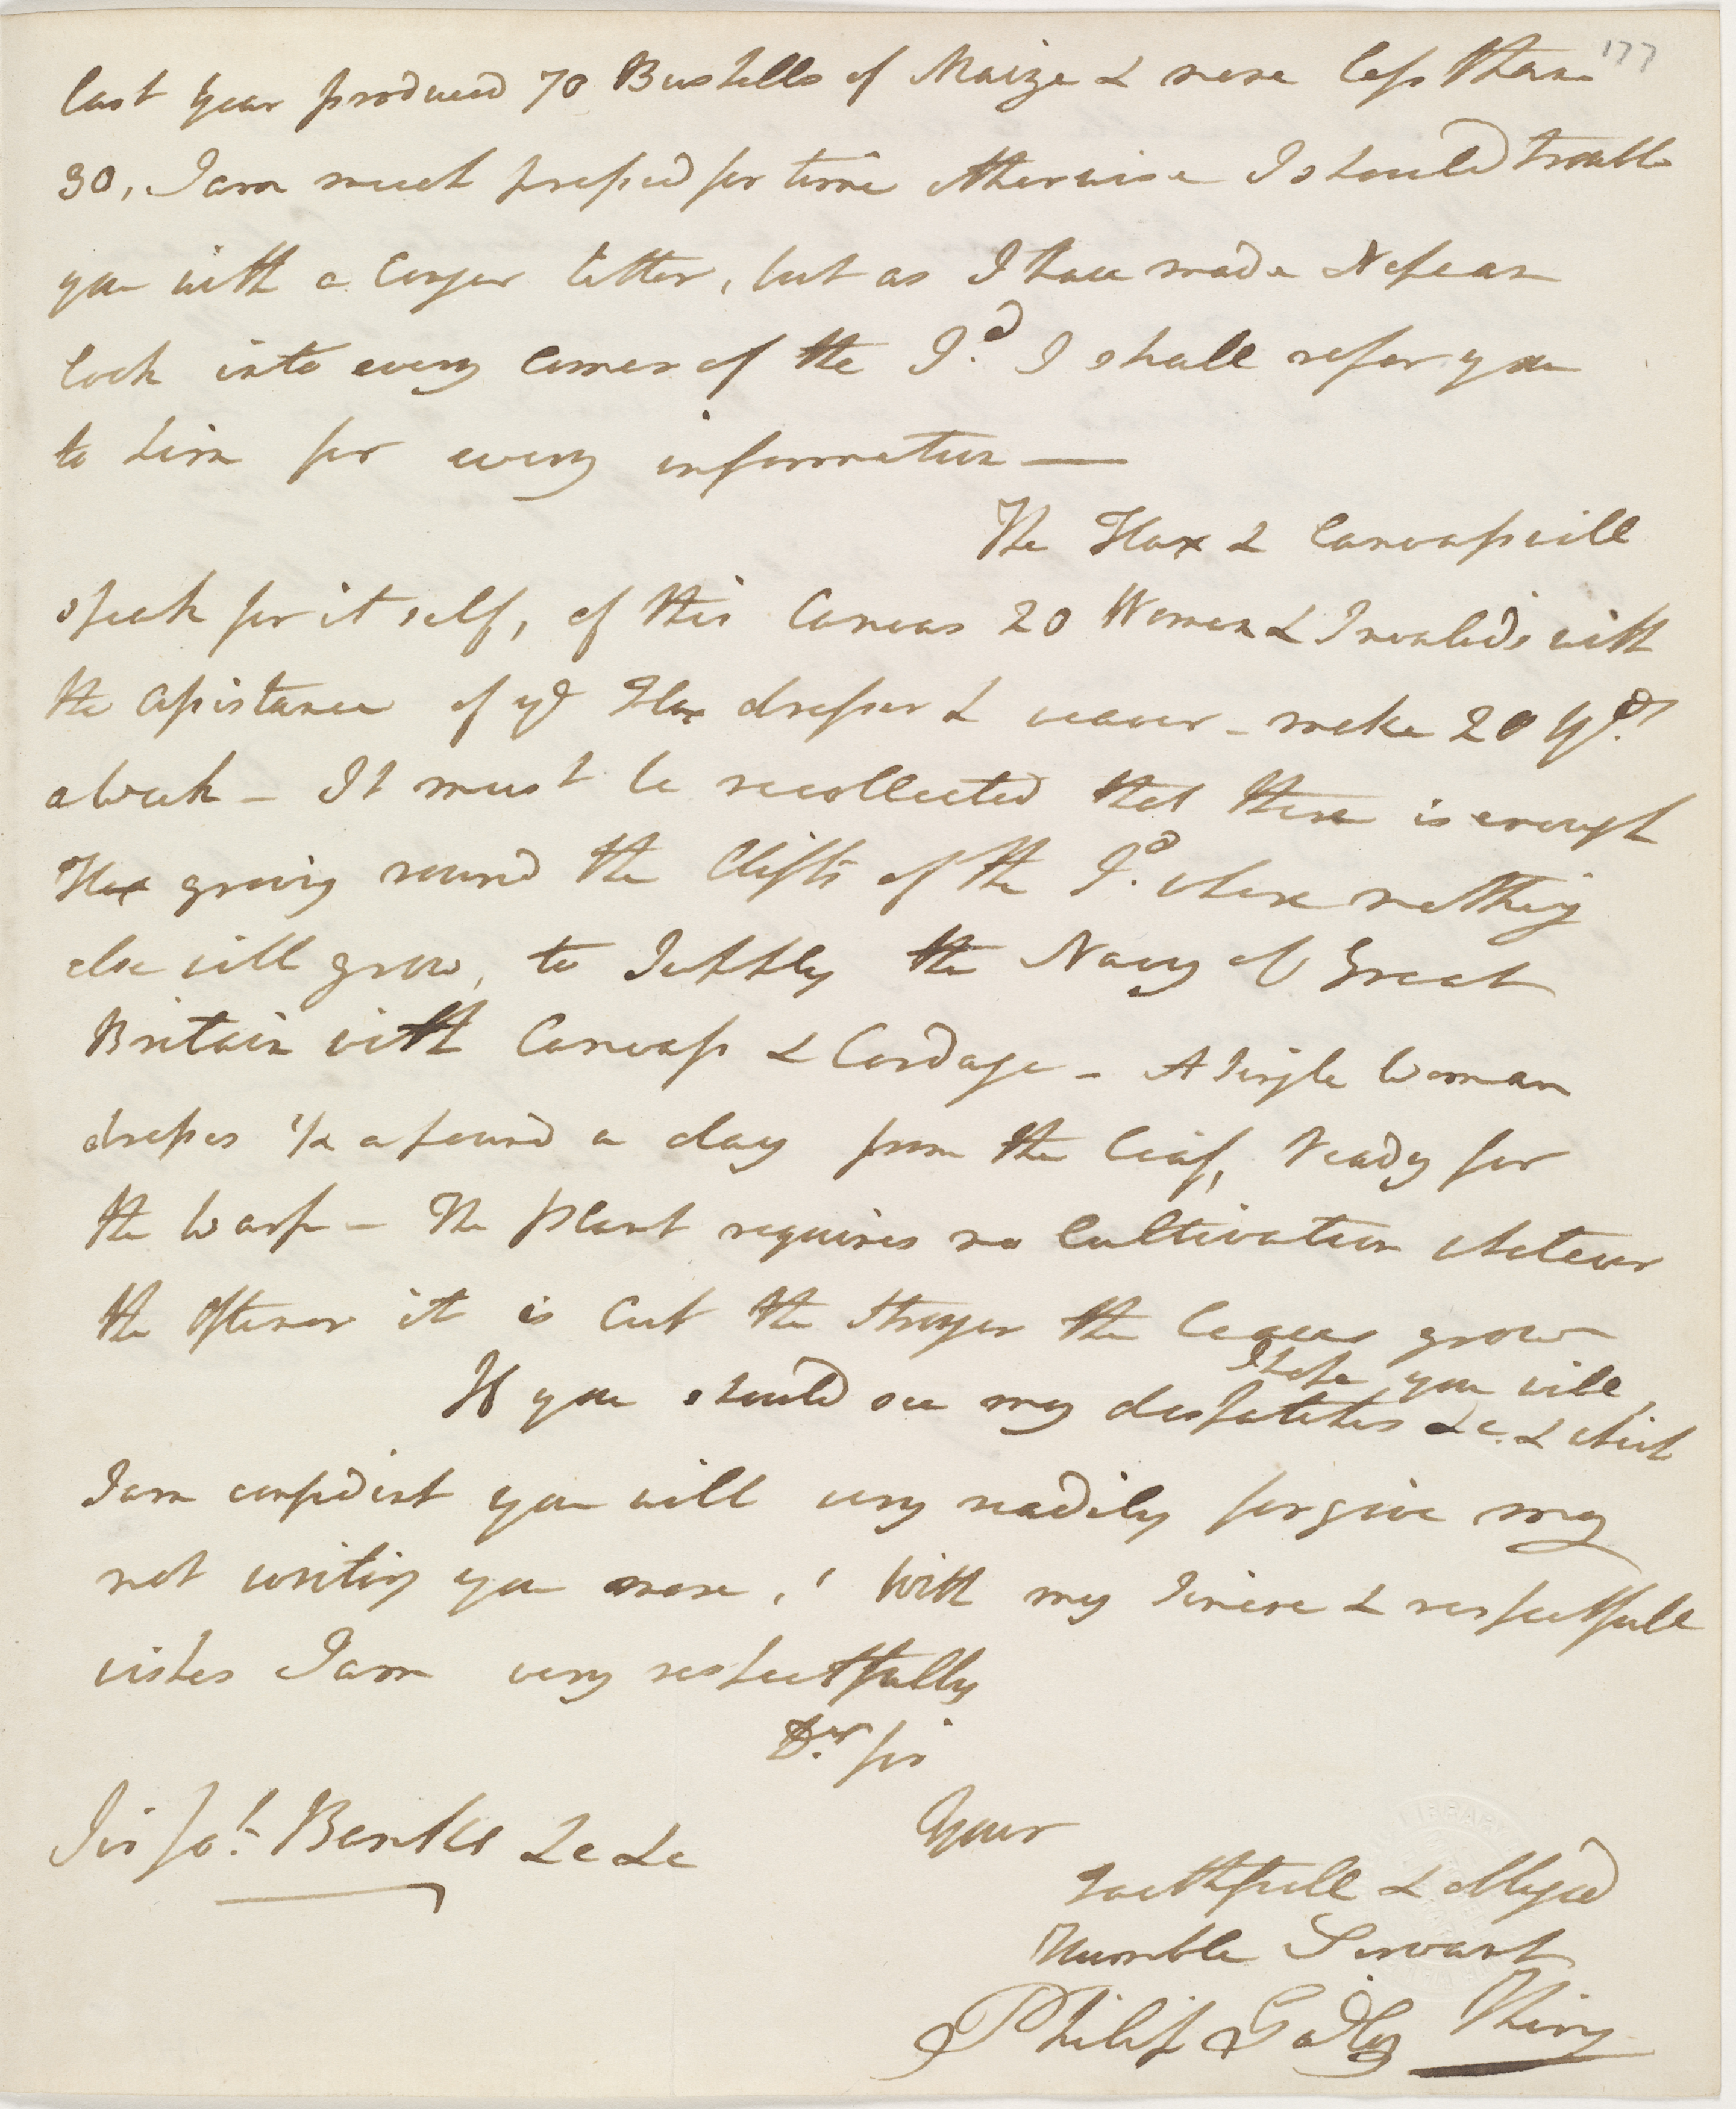 177
last year produced 70 Bushells of Maize & none less than
30, I am much pressed for time otherwise I should trouble
you with a longer letter, but as I have made Nepean
look into every corner of the I.d I shall refer you
to him for every information —
The Flax & Canvass will
speak for it self, of this Canvas 20 Women & Invalids with
the assistance of ye Flax dresser & weaver - make 20 Yds
a Week - It must be recollected that there is enough
Flax growing round the Clifts of the I.d where nothing
else will grow, to Supply the Navy of Great
Britain with Canvass & Cordage - A Single Woman
dresses 1/2 a pound a day from the leaf, ready for
the Warp - The plant requires no Cultivation whatever
the oftener it is Cut the stronger the leaves grow
I hope you will,
If you should see my despatches &c. & which
I am confident you will very readily forgive my
not writing you more, With my Sincere & respectfull
wishes I am very respectfully
Dr. sir
Your
Sir Jos. Banks &c &c
Faithfull & obliged
Humble Servant
Philip Gidley King